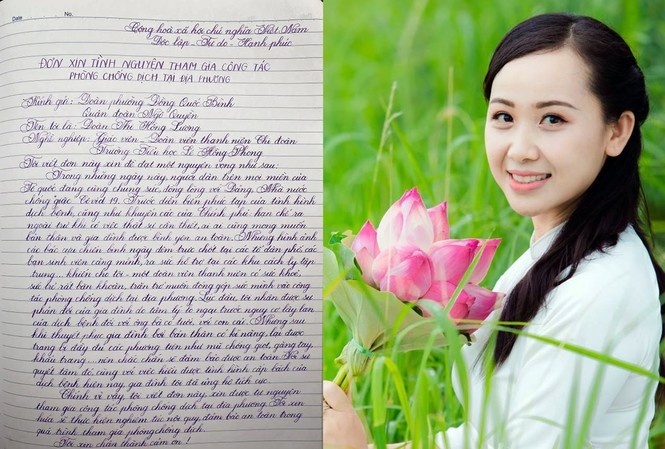 Date No.
Cộng hoà xã hội chủ nghĩa Việt Nam
Độc lập - Tự do - Hạnh phúc
ĐƠN XIN TÌNH NGUYỆN THAM GIA CÔNG TÁC
PHÒNG CHỐNG DỊCH TẠI ĐỊA PHƯƠNG
Kính gửi: Đoàn phường Đồng Quốc Bình
Quận đoàn Ngô Quyền
Tên tôi là: Đoàn Thị Hồng Lương
Nghề nghiệp: Giáo viên - Đoàn viên thanh niên Chi đoàn
Trường Tiểu học Lê Hồng Phong
Tôi viết đơn này xin đề đạt một nguyện vọng như sau:
Trong những ngày này, người dân trên mọi miền của
Tổ quốc đang cùng chung sức, đồng lòng với Đảng, Nhà nước
chống giặc Covid 19. Trước diễn biến phức tạp của tình hình
dịch bệnh, cũng như khuyến cáo của Chính phủ: hạn chế ra
ngoài trừ khi có việc thật sự cần thiết, ai ai cũng mong muốn
bản thân và gia đình được bình yên, an toàn. Nhưng hình ảnh
các bác cựu chiến binh ngày đêm trực chốt tại các tổ dân phố, các
bạn sinh viên căng mình ra sức hỗ trợ tại các khu cách ly tập
trung... khiến cho tôi - một đoàn viên thanh niên có sức khoẻ,
sức trẻ rất băn khoăn, trăn trở muốn đóng góp sức mình vào công
tác phòng chống dịch tại địa phương. Lúc đầu, tôi nhận được sự
phản đối của gia đình do tâm lý lo ngại trước nguy cơ lây lan
của dịch bệnh đối với ông bà có tuổi, với con cái. Nhưng sau
khi thuyết phục gia đình bởi bản thân có kĩ năng, lại được
trang bị đầy đủ các phương tiện như mũ chống giọt, găng tay,
khẩu trang... nên chắc chắn sẽ đảm bảo được an toàn. Với sự
quyết tâm đó, cùng với việc hiểu được tình hình cấp bách của
dịch bệnh hiện nay, gia đình tôi đã ủng hộ tích cực.
Chính vì vậy, tôi viết đơn này xin được tự nguyện
tham gia công tác phòng chống dịch tại địa phương. Tôi xin
hứa sẽ thực hiện nghiêm túc nội quy, đảm bảo an toàn trong
quá trình tham gia phòng chống dịch.
Tôi xin chân thành cảm ơn!